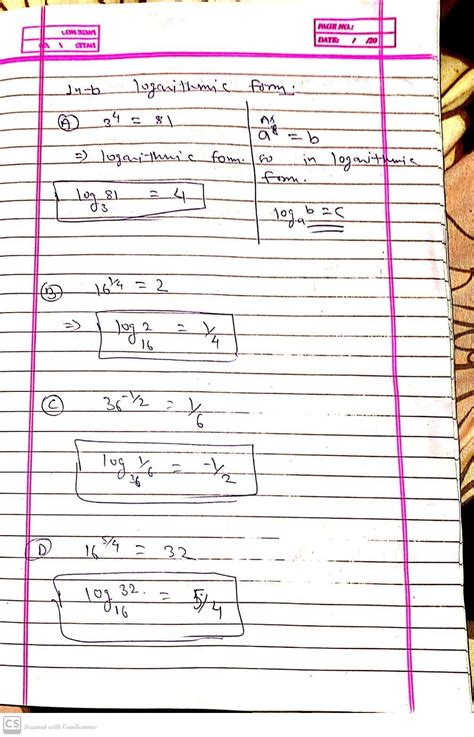 PAGE NO.:
DATE: / /20
In-b logarithmic form:
(A) 3^4 = 81
=> logarithmic form.
log_3 81 = 4
As
a^c = b
so in logarithmic
form.
log_a b = c
(B) 16^1/4 = 2
=> log_16 2 = 1/4
(C) 36^-1/2 = 1/6
log_36 1/6 = -1/2
(D) 16^5/4 = 32
log_16 32 = 5/4
CS Scanned with CamScanner